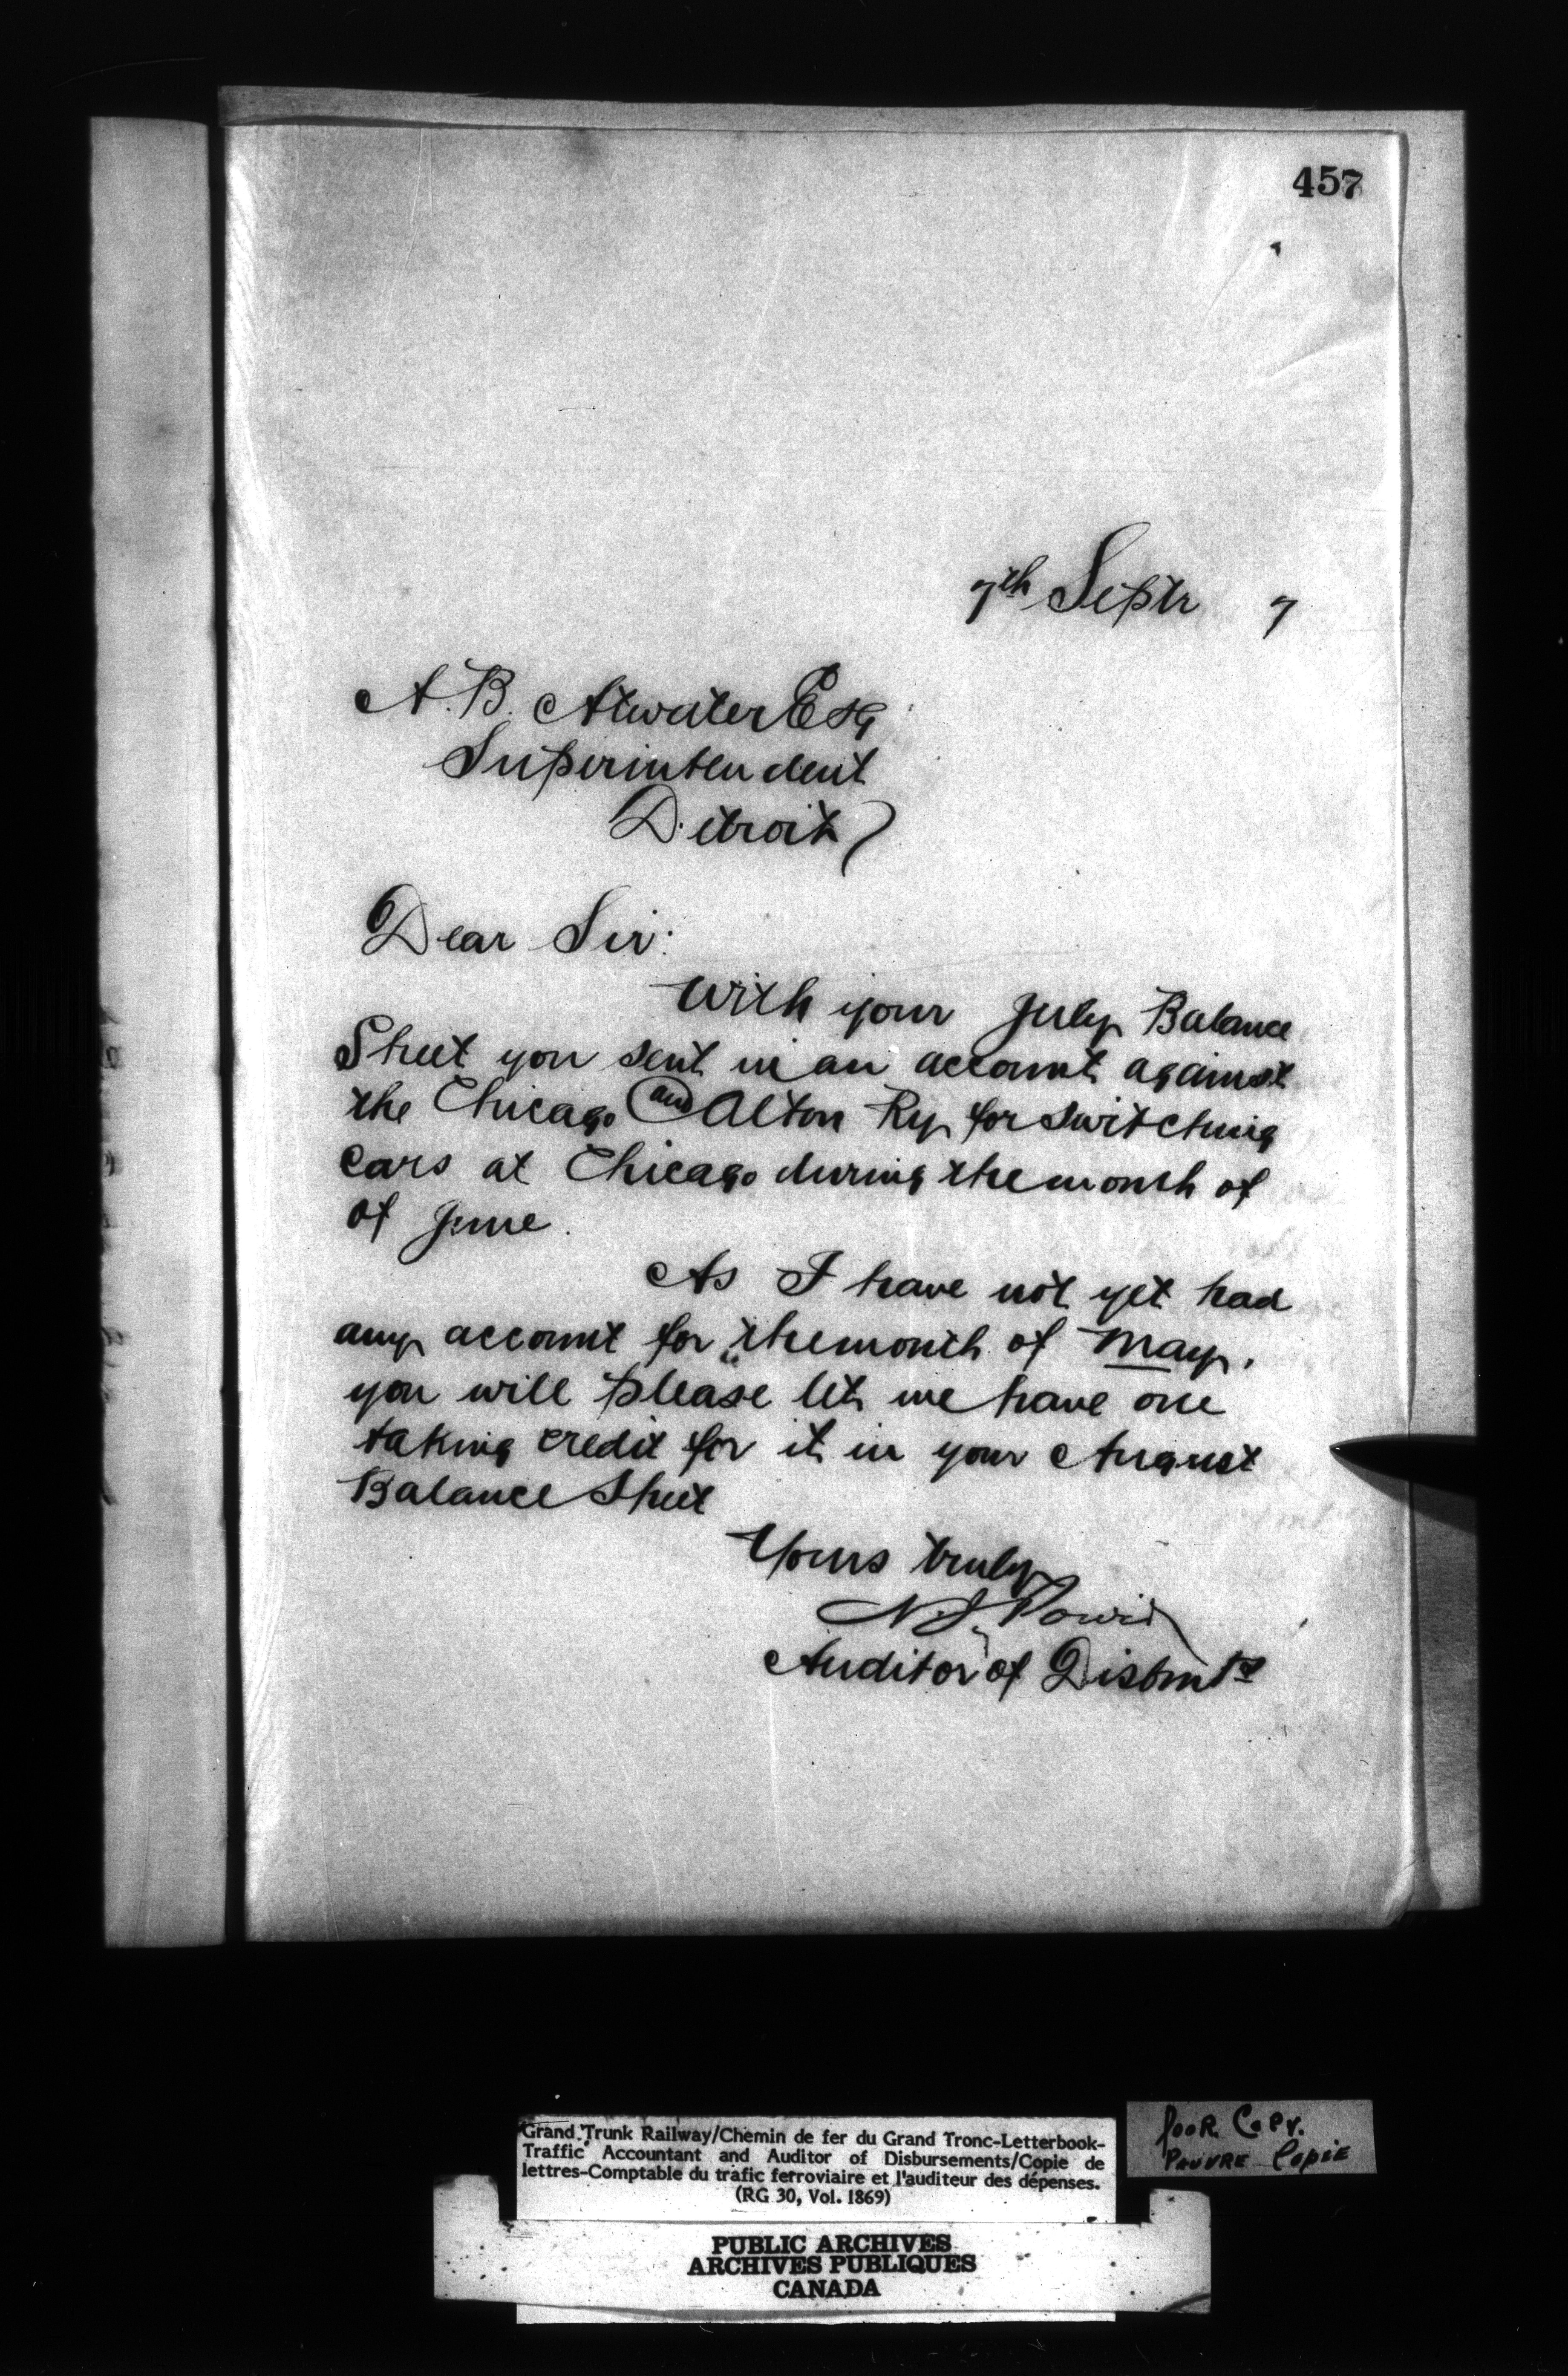 457
7th Septr 7
A. B. Atwater Esq
Superintendent
Detroit
Dear Sir:
With your July Balance
Sheet you sent in an account against
the Chicago and Alton Ry for switching
cars at Chicago during the month of
of June.
As I have not yet had
any account for the month of May,
you will please let me have one
taking credit for it in your August
Balance Sheet
Yours truly
N J Power
Auditor of Disbmts
Grand Trunk Railway/Chemin de fer du Grand Tronc-Letterbook-
Traffic Accountant and Auditor of Disbursements/Copie de
lettres-Comptable du trafic ferroviaire et l'auditeur des dépenses.
(RG 30, Vol. 1869)
Poor Copy.
Pauvre Copie
PUBLIC ARCHIVES
ARCHIVES PUBLIQUES
CANADA